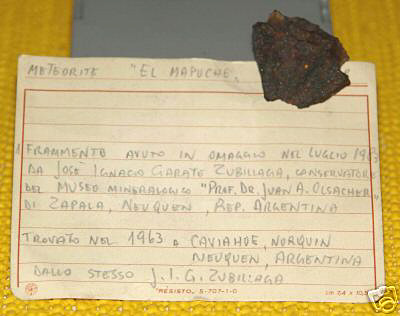 METEORITE "EL MAPUCHE"
FRAMMENTO AVUTO IN OMAGGIO NEL LUGLIO 1963
DA JOSE' IGNACIO GARATE ZUBILLAGA, CONSERVATORE
DEL MUSEO MINERALOGICO "PROF. DR. JUAN A. OLSACHER"
DI ZAPALA, NEUQUEN, REP. ARGENTINA
TROVATO NEL 1963 A CAVIAHUE, NORQUIN
NEUQUEN, ARGENTINA
DALLO STESSO J. I. G. ZUBILLAGA
RESISTO. S-707-1-0 cm 7,4 x 10,5